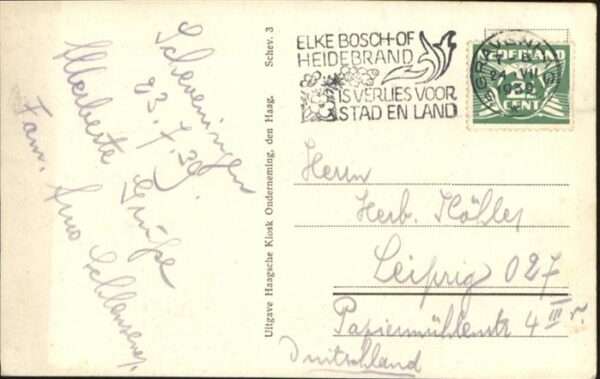 Scheveningen
23.7.39.
Allerbeste Grüße
Fam. Arno
Uitgave Haagsche Kiosk Onderneming, den Haag. Schev. 3
ELKE BOSCH-OF
HEIDEBRAND
IS VERLIES VOOR
STAD EN LAND
'S GRAVENHAGE
24 VII
NEDERLAND
CENT
Herrn
Herb. Köhler
Leipzig O27
Papiermühlenstr 4 III r.
Deutschland